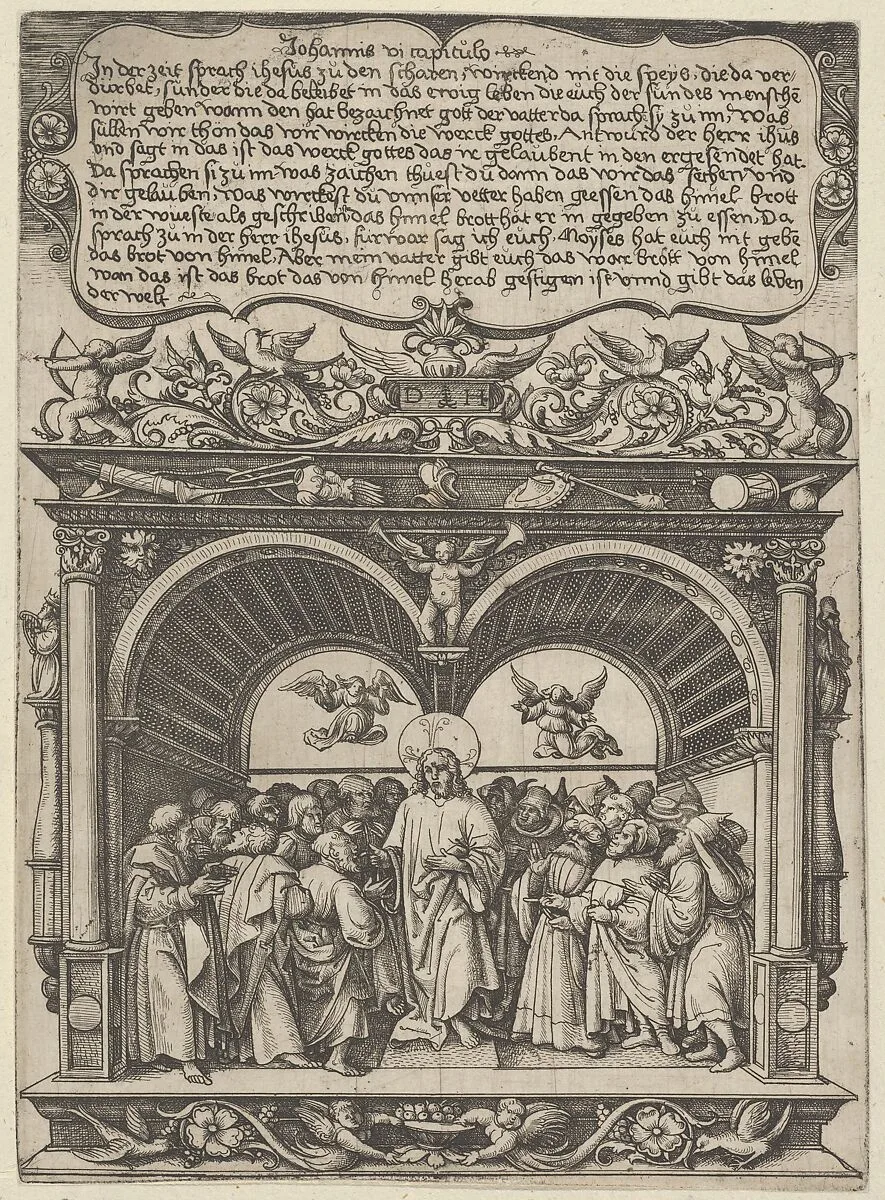 Johannis vi capitulo
In der zeit sprach ihesus zu den scharen, wirckend nit die speys, die da ver-
durbet, sunder die da beleibet in das ewig leben die euch der sun des menschē
wirt geben wann den hat bezaichnet gott der vatter da sprachē sy zu im, was
sullen wir thon das wir wircken die werck gottes, Antwurd der herr ihus
vnd sagt in das ist das werck gottes das ir gelaubent in den er gesendet hat.
Da sprachen si zu im was zaichen thuest du dann das wir das sechen vnd
dir gelauben, was wirckest du vnnser vetter haben geessen das himel brott
in der wüeste als geschriben das himel brott hat er in gegeben zu essen, Da
sprach zu in der herr ihesus, fur war sag ich euch, Moyses hat euch nit gebē
das brot von himel, Aber mein vatter gibt euch das war brott von himel
wan das ist das brot das von himel herab gestigen ist vnnd gibt das leben
der welt
D H